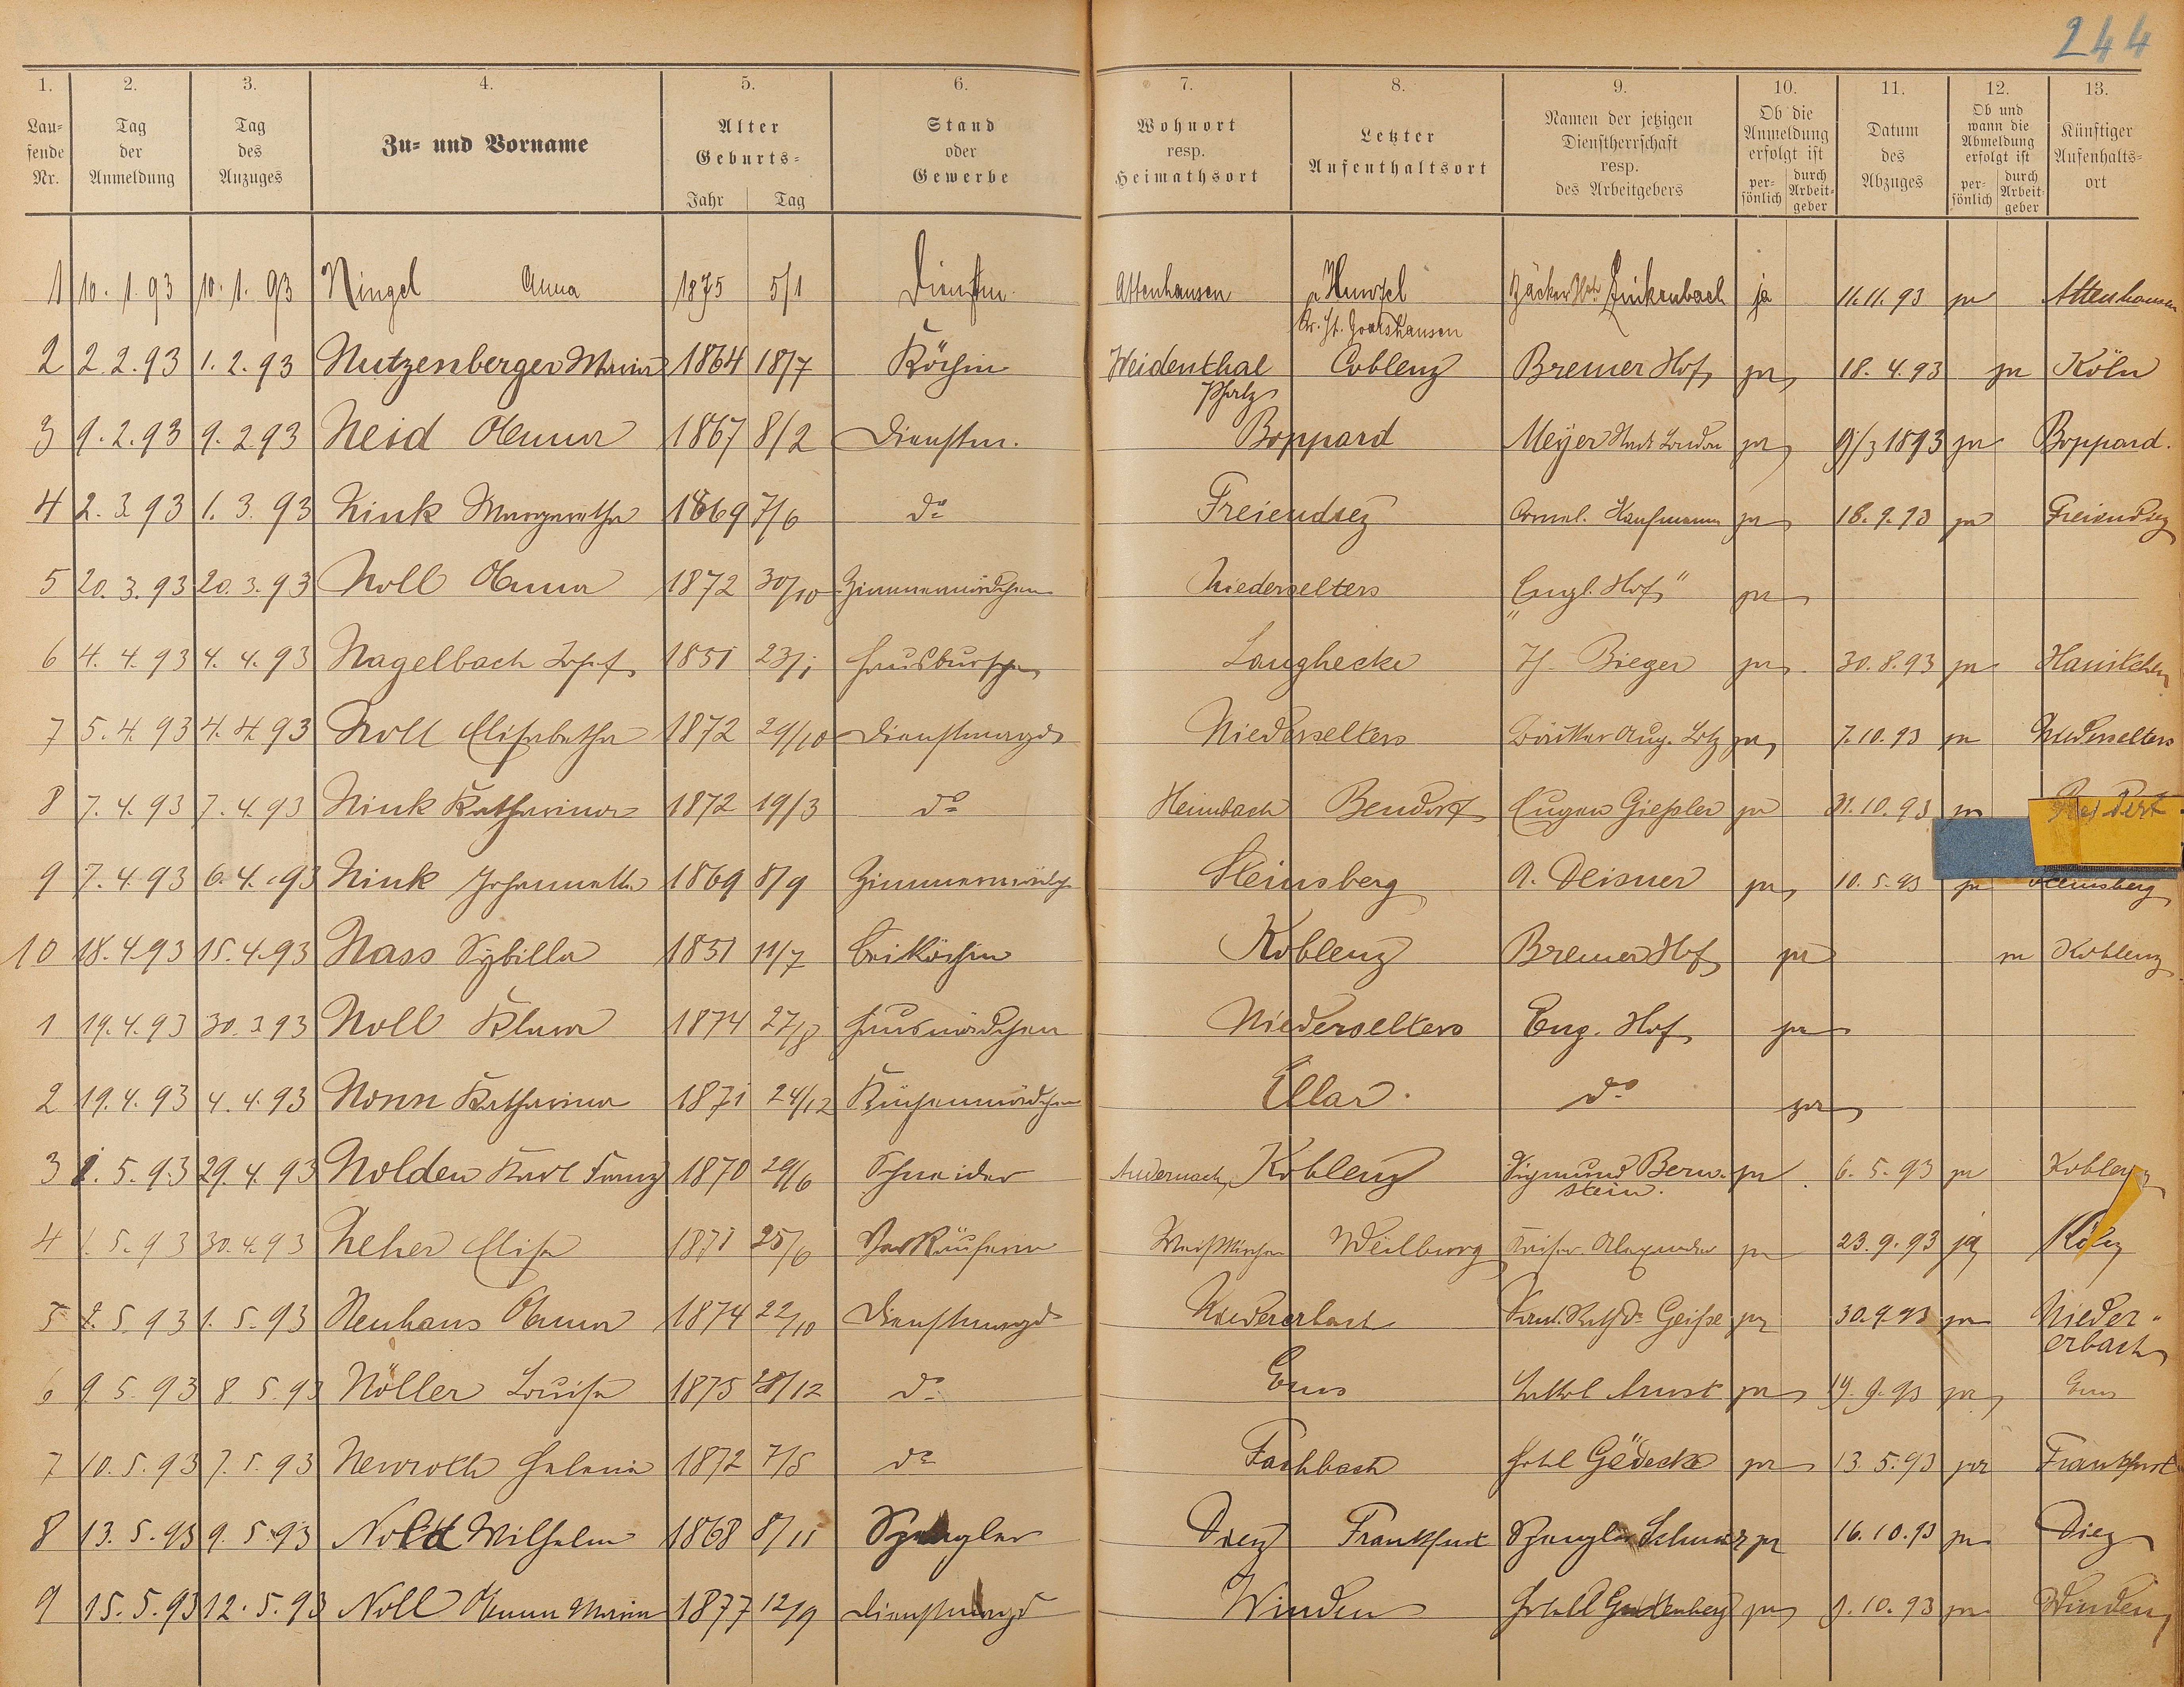 244
1. 2. 3. 4. 5. 6. 7. 8. 9. 10. 11. 12. 13.
Lau-
fende
Nr.
Tag
der
Anmeldung
Tag
des
Anzuges
Zu- und Vorname
Alter
Geburts-
Jahr Tag
Stand
oder
Gewerbe
Wohnort
resp.
Heimathsort
Letzter
Aufenthaltsort
Namen der jetzigen
Dienstherrschaft
resp.
des Arbeitgebers
Ob die
Anmeldung
erfolgt ist
per-
sönlich
durch
Arbeit-
geber
Datum
des
Abzuges
Ob und
wann die
Abmeldung
erfolgt ist
per-
sönlich
durch
Arbeit-
geber
Künftiger
Aufenhalts-
ort
1 10. 1. 93 10. 1. 93 Ningel Anna 1875 5/1 Dienstm. Attenhausen Hunzel Bäcker Zinkenbach ja 11.11.93 ja Attenhausen
Kr. St. Goarshausen
2 2.2.93 1.2.93 Nutzenberger Maria 1864 18/7 Köchin Weidenthal Coblenz Bremer Hof ja 18.4.93 ja Köln
Pfalz
3 9.2.93 9.2.93 Neid Anna 1867 8/2 Dienstm. Boppard Meyer Stadt London ja 9/3 1893 ja Boppard.
4 2.3.93 1.3.93 Nink Margaretha 1869 7/6 do Freiendiez Kaufmann ja 18.9.93 ja Freiendiez
5 20.3.93 20.3.93 Noll Anna 1872 30/10 Zimmermädchen Niederselters „Engl. Hof" ja
6 4.4.93 4.4.93 Nagelbach Josef 1851 23/1 Hausbursche Langhecke Bieger ja 30.8.93 ja
7 5.4.93 4.4.93 Noll Elisabetha 1872 29/10 Dienstmagd Niederselters Aug. Lotz ja 7.10.93 ja Niederselters
8 7.4.93 7.4.93 Nink Katharina 1872 19/3 do Heimbach Bendorf Eugen Gießler ja 31.10.93 ja
9 7.4.93 6.4.93 Nink Johannetta 1869 8/9 Zimmermädch Steinsberg A. Deisner ja 10.5.93 ja Steinsberg
10 18.4.93 15.4.93 Nass Sybilla 1851 11/7 Beiköchin Koblenz Bremer Hof ja ja Koblenz
1 19.4.93 30.3.93 Noll Klara 1874 27/8 Hausmädchen Niederselters Eng. Hof ja
2 19.4.93 4.4.93 Nonn Katharina 1871 24/12 Küchenmädchen Ellar. do ja
3 1.5.93 29.4.93 Nolden Karl Franz 1870 29/6 Schneider Andernach Koblenz Sigmund Bern- ja 6.5.93 ja Koblenz
stein.
4 1.5.93 30.4.93 Neher Elise 1871 25/6 Verkäuferin Weißkirchen Weilburg Kaiser Alexander ja 23.9.93 ja Köln
5 2.5.93 1.5.93 Neuhaus Anna 1874 22/10 Dienstmagd Niedererbach Geiße ja 30.9.93 ja Nieder-
erbach
6 9.5.93 8.5.93 Nöller Louise 1875 28/12 do Ems ja 19.9.93 ja Ems
7 10.5.93 7.5.93 Neuroth Helene 1872 7/5 do Fachbach Hotel Gödecke ja 13.5.93 ja Frankfurt
8 13.5.93 9.5.93 Wilhelm 1868 8/11 Spengler Diez Frankfurt Spengler ja 16.10.93 ja Diez
9 15.5.93 12.5.93 Noll Anna Maria 1877 12/9 Dienstmagd Winden Hotel Guttenberg ja 9.10.93 ja Winden